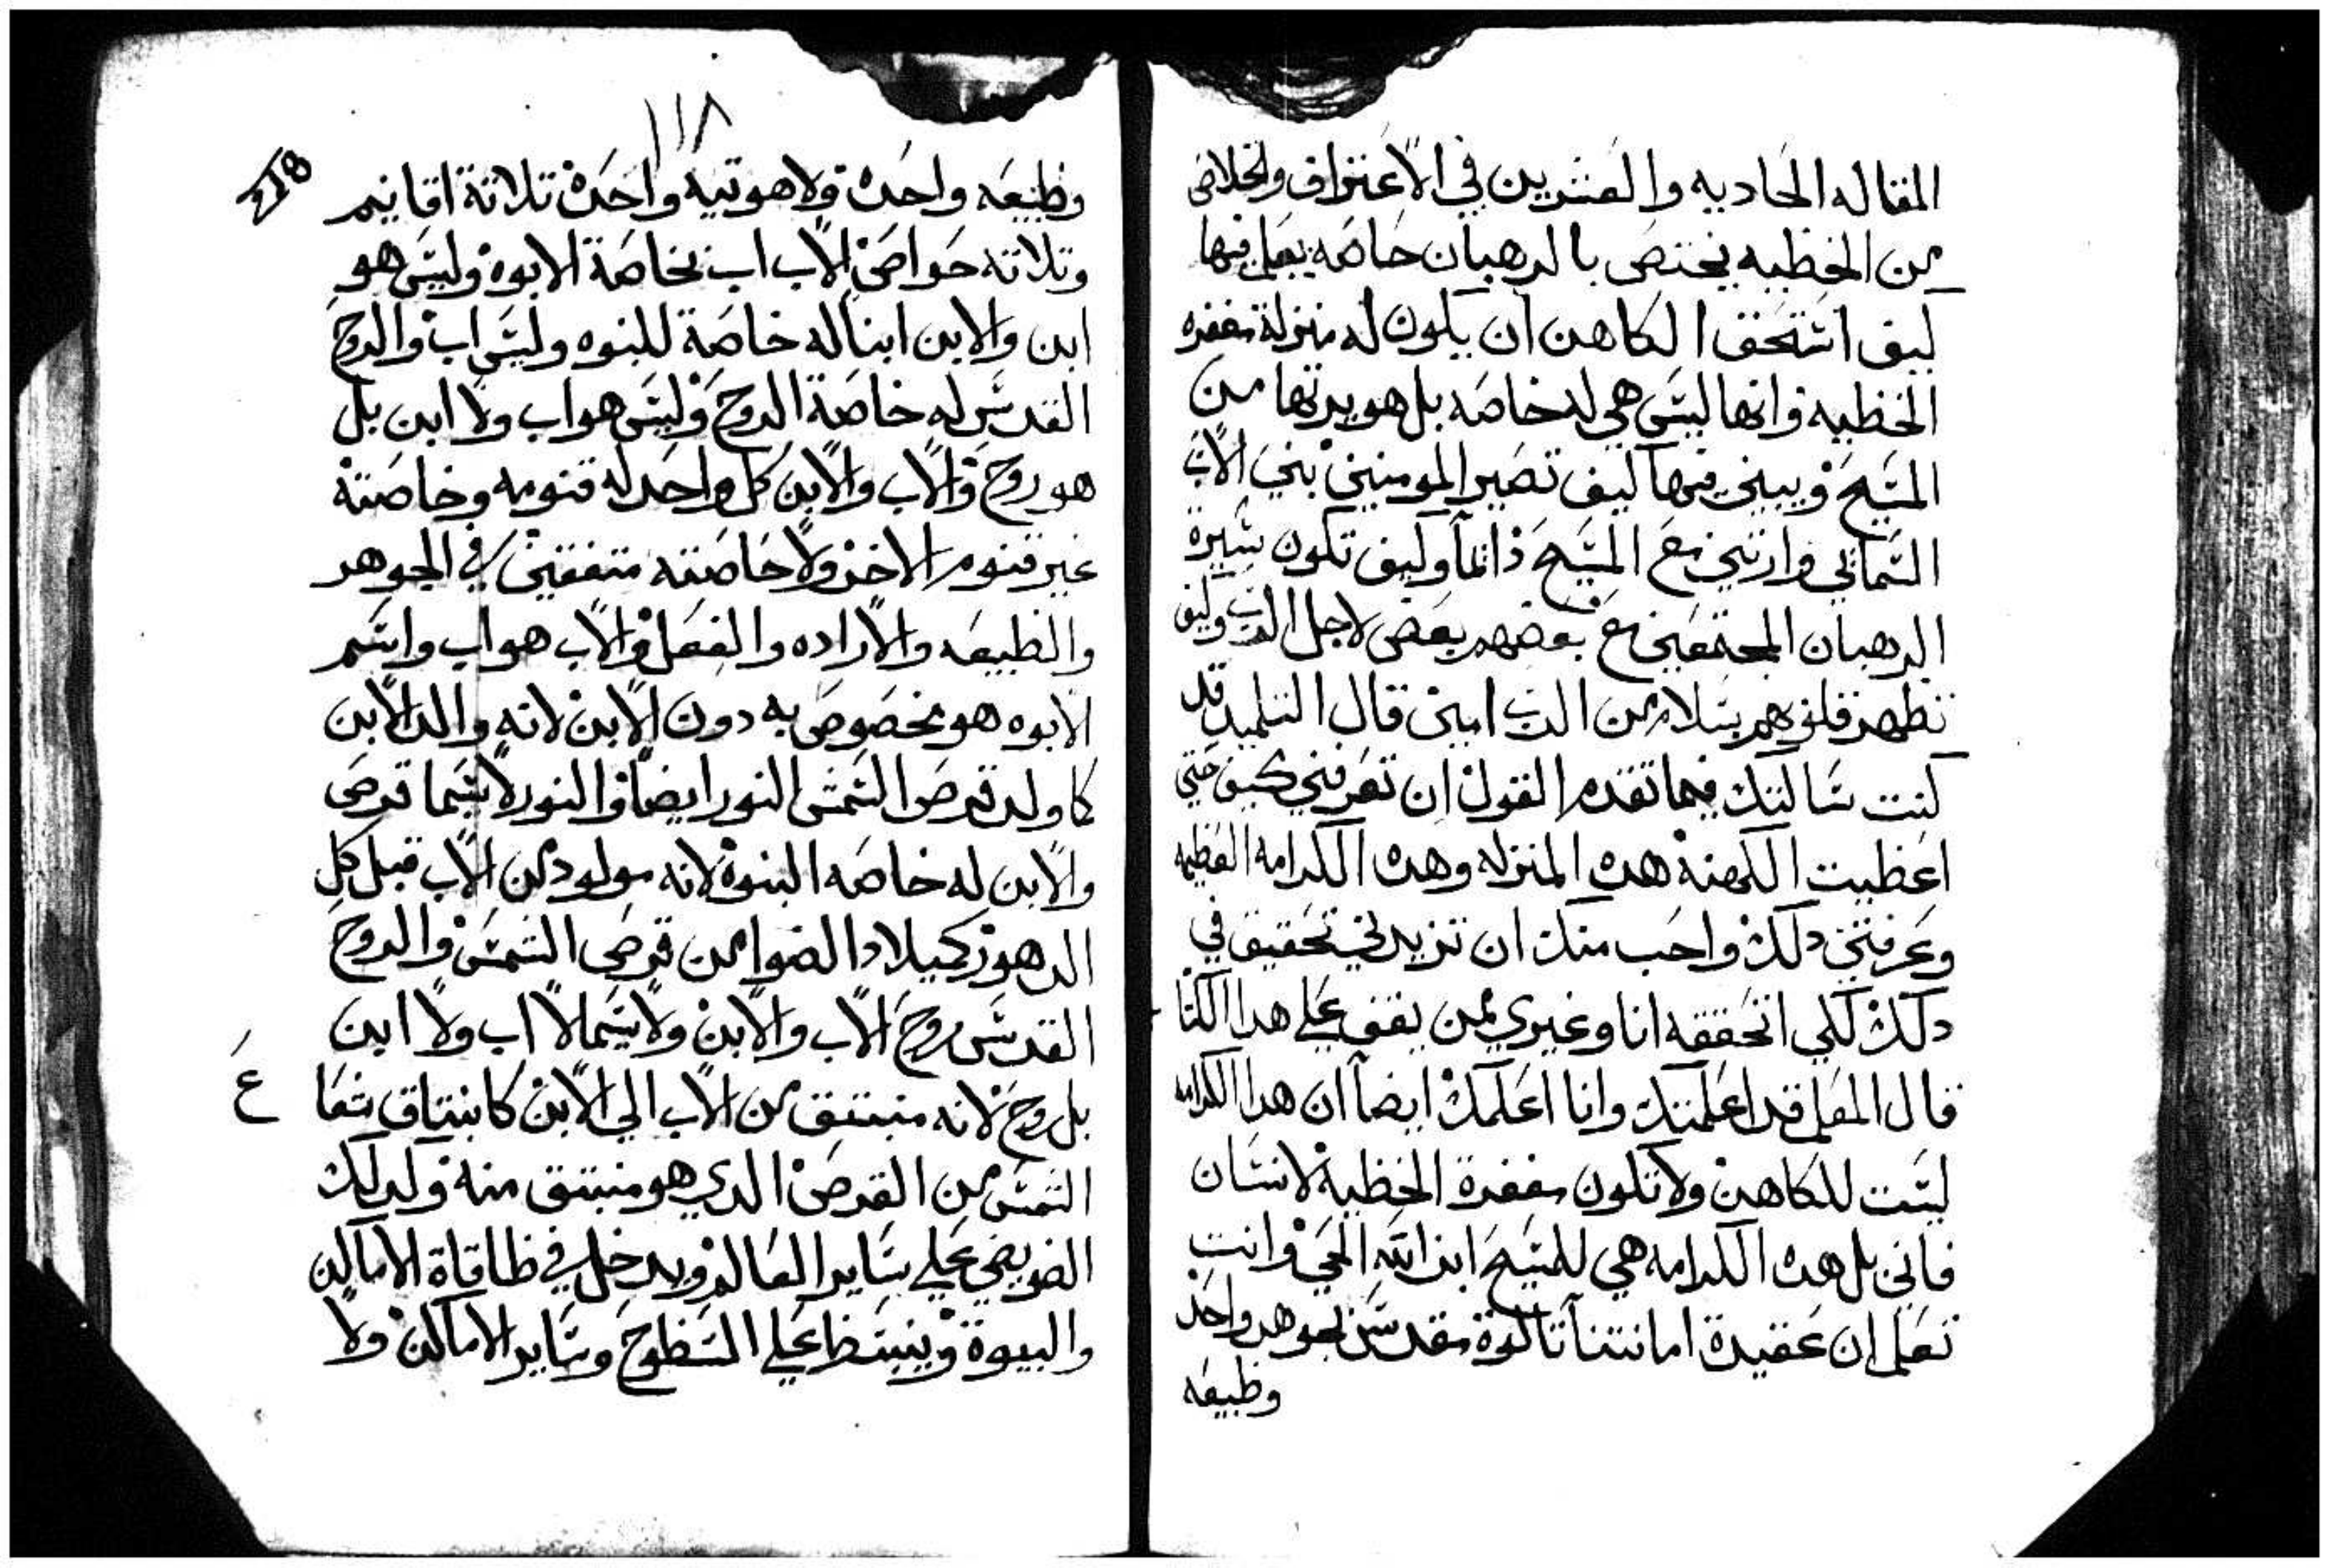 المقاله الحاديه والعشرين في الاعتراف والخلاص
من الخطيه يختص بالرهبان خاصه يعلم فيها
كيف استحق الكاهن ان يكون له منزلة مغفره
الخطيه وانها ليس هي له خاصه بل هو يرتها من
المسيح ويبين فيها كيف تصير المومنين بني الاب
السمايي وارتين مع المسيح دايما وكيف تكون سيرة
الرهبان المجتمعين مع بعضهم بعض لاجل الرب وكيف
تطهر قلوبهم بسلام من الرب امين قال التلميد قد
كنت سالتك فيما تقدم القول ان تعرفني كيف حتي
اعطيت الكهنة هده المنزله وهده الكرامه العظيمه
وعرفتني دلك واحب منك ان تزيدني تحقيق في
دلك لكي اتحققه انا وغيري ممن يقف علي هدا الكتا
قال المعلم قد اعلمتك وانا اعلمك ايضا ان هدا الكرامه
ليست للكاهن ولا تكون مغفرة الخطية لانسان
فاني بل هده الكرامه هي للمسيح ابن الله الحي وانت
تعلم ان عقيدة امانتنا تالوة مقدس بجوهر واحد
وطبيعه
١١٨
118
وطبيعه واحده ولاهوتيه واحدة تلاتة اقانيم
وتلاته خواص الاب اب بخاصة الابوه وليس هو
ابن والابن ابنا له خاصة للبنوه وليس اب والروح
القدس له خاصة الروح وليس هو اب ولا ابن بل
هو روح والاب والابن كل واحد له قنومه وخاصتة
غير قنوم الاخر ولا خاصته متفقين في الجوهر
والطبيعه والاراده والفعل والاب هو اب واسم
الابوه هو مخصوص به دون الابن لانه والد الابن
كما ولد قرص الشمس النور ايضا والنور لا يسما قرص
والابن له خاصه البنوة لانه مولود من الاب قبل كل
الدهور كميلاد الضوا من قرص الشمس والروح
القدس روح الاب والابن ولا يسما لا اب ولا ابن
بل روح لانه منبتق من الاب الي الابن كانبتاق شعا
ع
الشمس من القرص الدي هو منبتق منه وكدلك
الضو يضي علي ساير العالم ويدخل في طاقاة الاماكن
والبيوة وينبسط علي السطوح وساير الاماكن ولا